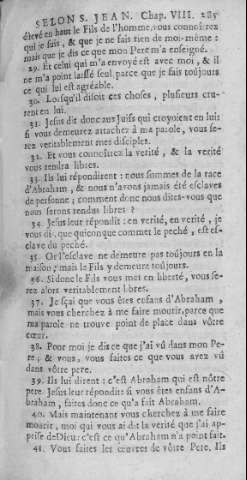 SELON S. JEAN. Chap. VIII. 285
élevé en haut le Fils de l'homme, vous connoîtrez
qui je suis, & que je ne fais rien de moi-même :
mais que je dis ce que mon Pere m'a enseigné.
29. Et celui qui m'a envoyé est avec moi, & il
ne m'a point laissé seul, parce que je fais toujours
ce qui lui est agréable.
30. Lorsqu'il disoit ces choses, plusieurs cru-
rent en lui.
31. Jesus dit donc aux Juifs qui croyoient en lui :
si vous demeurez attachez à ma parole, vous se-
rez veritablement mes disciples.
32. Et vous connoîtrez la verité, & la verité
vous rendra libres.
33. Ils lui répondirent : nous sommes de la race
d'Abraham, & nous n'avons jamais été esclaves
de personne ; comment donc nous dites-vous que
nous serons rendus libres ?
34. Jesus leur répondit : en verité, en verité, je
vous dis, que quiconque commet le peché, est es-
clave du peché.
35. Or l'esclave ne demeure pas toujours en la
maison ; mais le Fils y demeure toujours.
36. Si donc le Fils vous met en liberté, vous se-
rez alors veritablement libres.
37. Je sçai que vous êtes enfans d'Abraham,
mais vous cherchez à me faire mourir, parce que
ma parole ne trouve point de place dans vôtre
cœur.
38. Pour moi je dis ce que j'ai vû dans mon Pe-
re ; & vous, vous faites ce que vous avez vû
dans vôtre pere.
39. Ils lui dirent : c'est Abraham qui est nôtre
pere. Jesus leur répondit : si vous êtes enfans d'A-
braham, faites donc ce qu'a fait Abraham.
40. Mais maintenant vous cherchez à me faire
mourir, moi qui vous ai dit la verité que j'ai ap-
prise de Dieu : c'est ce qu'Abraham n'a point fait.
41. Vous faites les œuvres de vôtre Pere. Ils